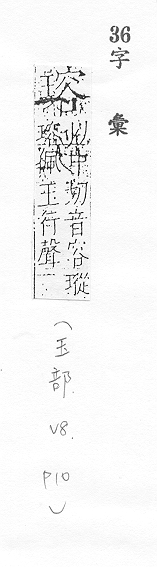 36字 彙
瑢
切音容瑽
瑢佩玉行聲
（玉部 V8. P10）